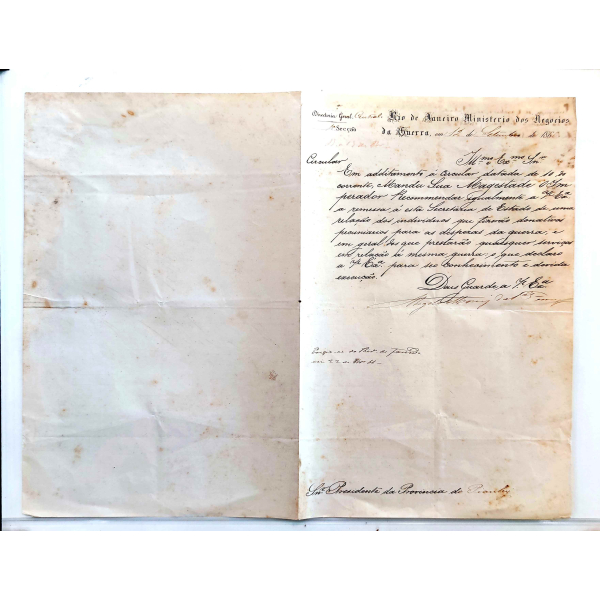 Directoria Geral Central Rio de Janeiro Ministerio dos Negocios
Secção da Guerra, em 12 de Setembro de
Circular Ill.mo e Ex.mo Snr.
Em additamento á circular datada de 10 do
corrente, Manda Sua Magestade O Im
perador Recommendar igualmente a V. Ex.a
a remessa, á esta Secretaria de Estado de uma
relação dos individuos que fizerão donativos
pecuniarios para as despezas da guerra, e
em geral dos que prestarão quaesquer serviços
em relação á mesma guerra; o que declaro
a V. Ex.a para seu conhecimento e devida
execução.
Deus Guarde a V. Ex.a
Snr. Presidente da Provincia do Piauhy